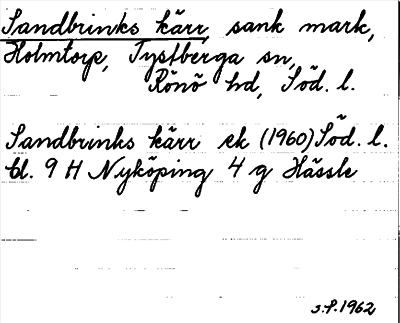 Sandbrinks kärr, sank mark,
Holmtorp, Tystberga sn,
Rönö hd, Söd. l.
Sandbrinks kärr ek (1960) Söd. l.
bl. 9 H Nyköping 4 g Hässle
S.P. 1962